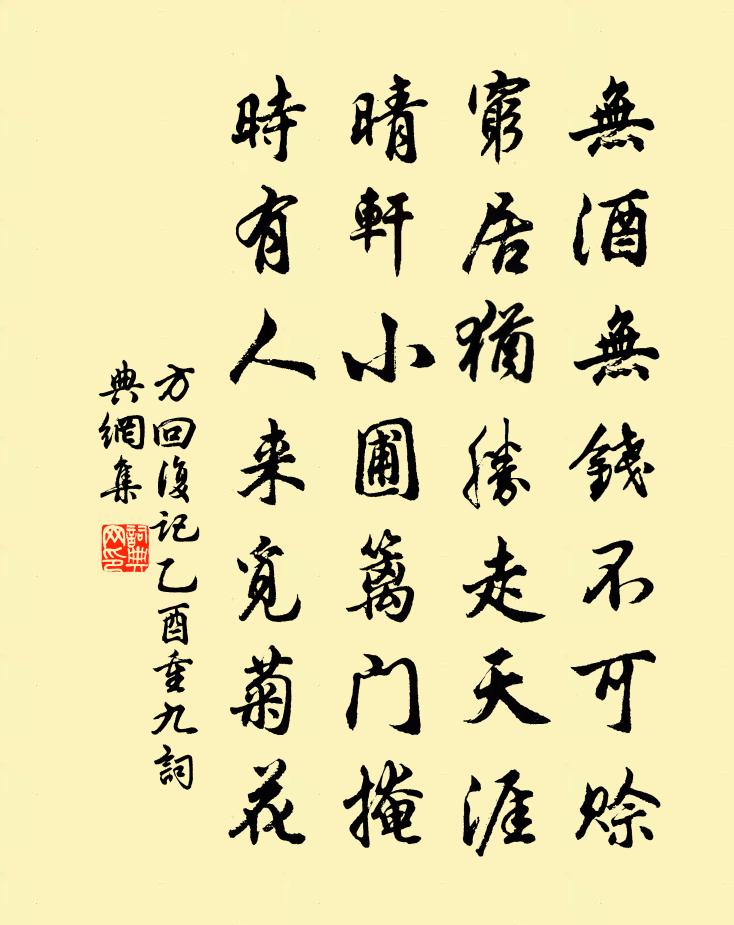 無酒無錢不可赊
窮居猶勝走天涯
晴軒小圃篱门掩
時有人来覓菊花
方回復记乙酉重九詞
典網集
詞典
网印